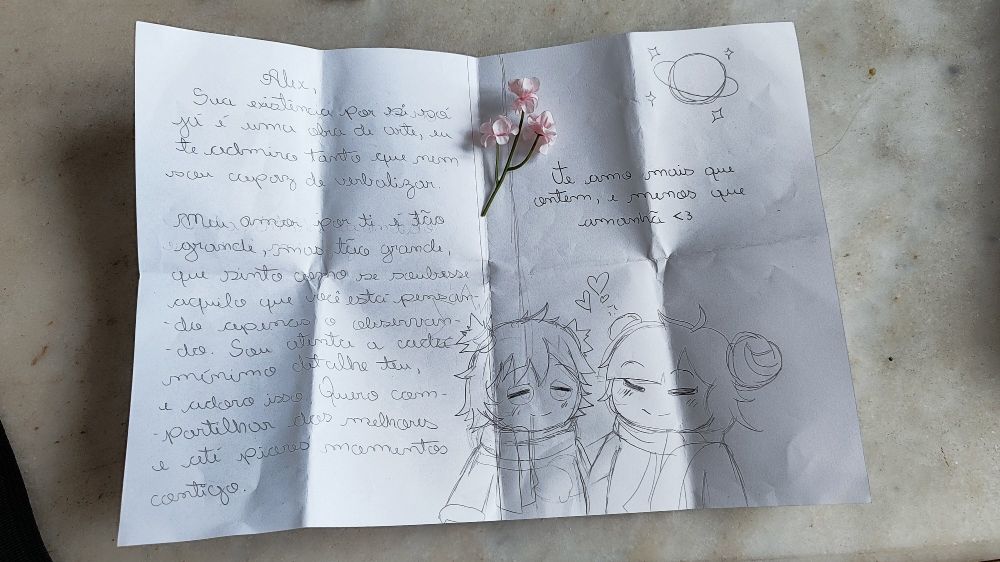 Alex,
Sua existência por si só
já é uma obra de arte, eu
te admiro tanto que nem
sou capaz de verbalizar.
Meu amor por ti, é tão
grande, mas tão grande,
que sinto como se soubesse
aquilo que você está pensan-
-do apenas o observan-
-do. Sou atenta a cada
mínimo detalhe teu,
e adoro isso. Quero com-
-partilhar dos melhores
e até piores momentos
contigo.
Te amo mais que
ontem, e menos que
amanhã <3